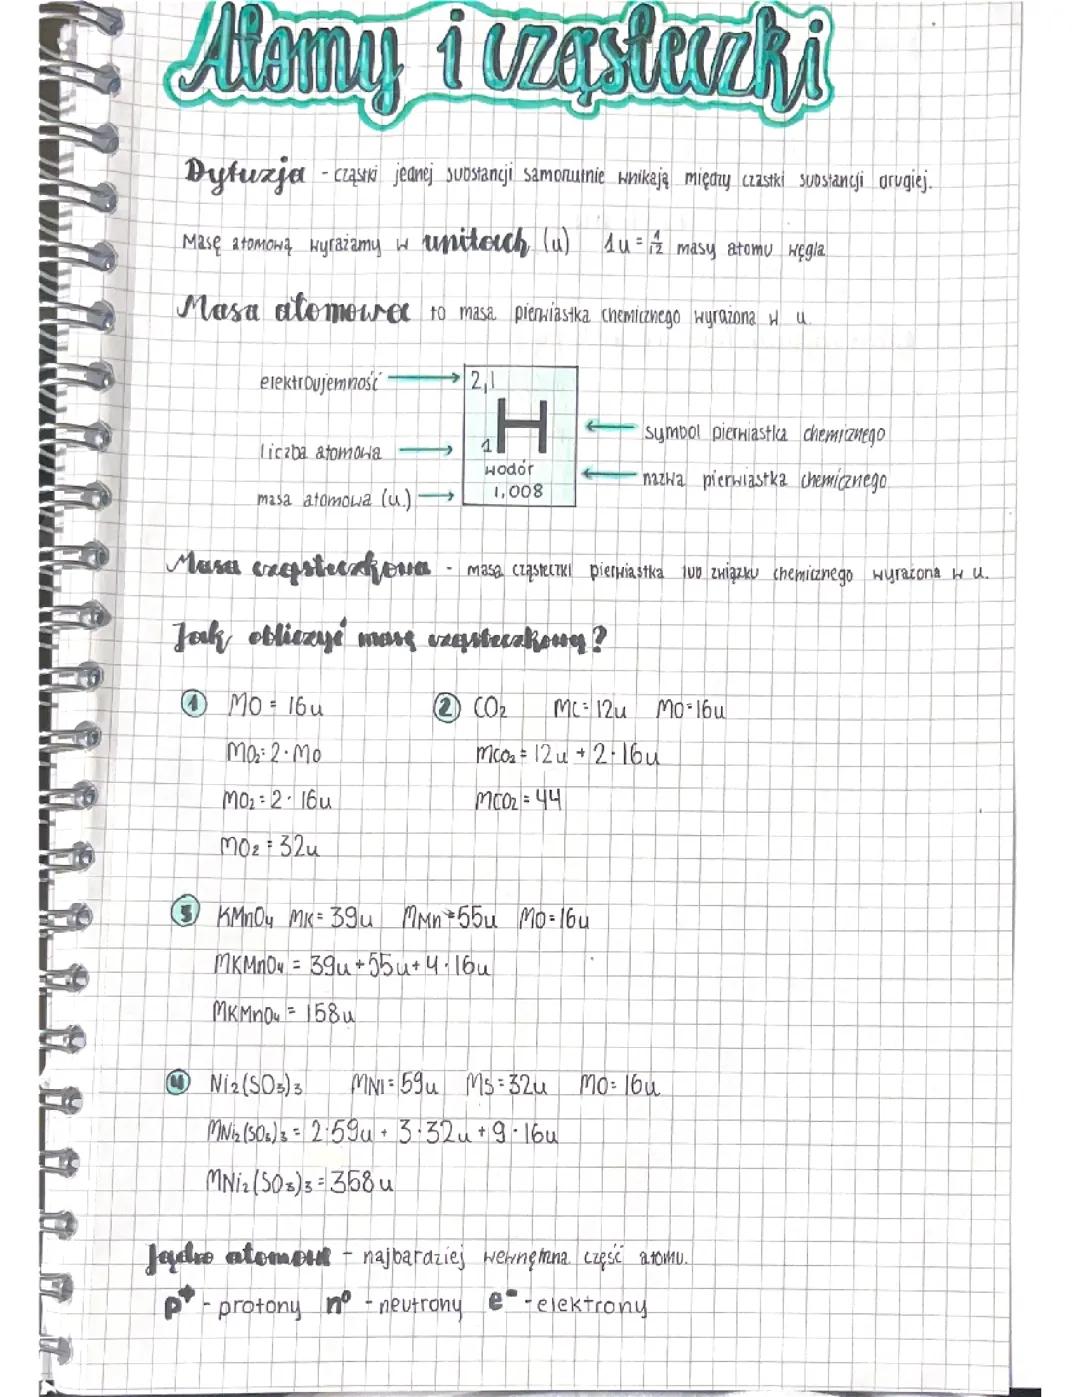 Atomy i cząsteczki
Dyfuzja - cząstki jednej substancji samorzutnie wnikają między cząstki substancji drugiej.
Masę atomową wyrażamy w unitach (u) 1u = 1/12 masy atomu węgla
Masa atomowa to masa pierwiastka chemicznego wyrażona w u
elektroujemność → 2,1
H
← symbol pierwiastka chemicznego
liczba atomowa → 1
wodór ← nazwa pierwiastka chemicznego
masa atomowa (u) → 1,008
Masa cząsteczkowa - masa cząsteczki pierwiastka lub związku chemicznego wyrażona w u.
Jak obliczyć masę cząsteczkową?
1 MO = 16u
MO₂ = 2 · MO
MO₂ = 2 · 16u
MO₂ = 32u
2 CO₂ MC = 12u MO = 16u
MCO₂ = 12u + 2 · 16u
MCO₂ = 44
3 KMnO₄ MK = 39u MMn = 55u MO = 16u
MKMnO₄ = 39u + 55u + 4 · 16u
MKMnO₄ = 158u
4 Ni₂(SO₃)₃ MNi = 59u MS = 32u MO = 16u
MNi₂(SO₃)₃ = 2·59u + 3·32u + 9·16u
MNi₂(SO₃)₃ = 358u
Jądro atomowe - najbardziej wewnętrzna część atomu.
p⁺ - protony n⁰ - neutrony e⁻ - elektrony